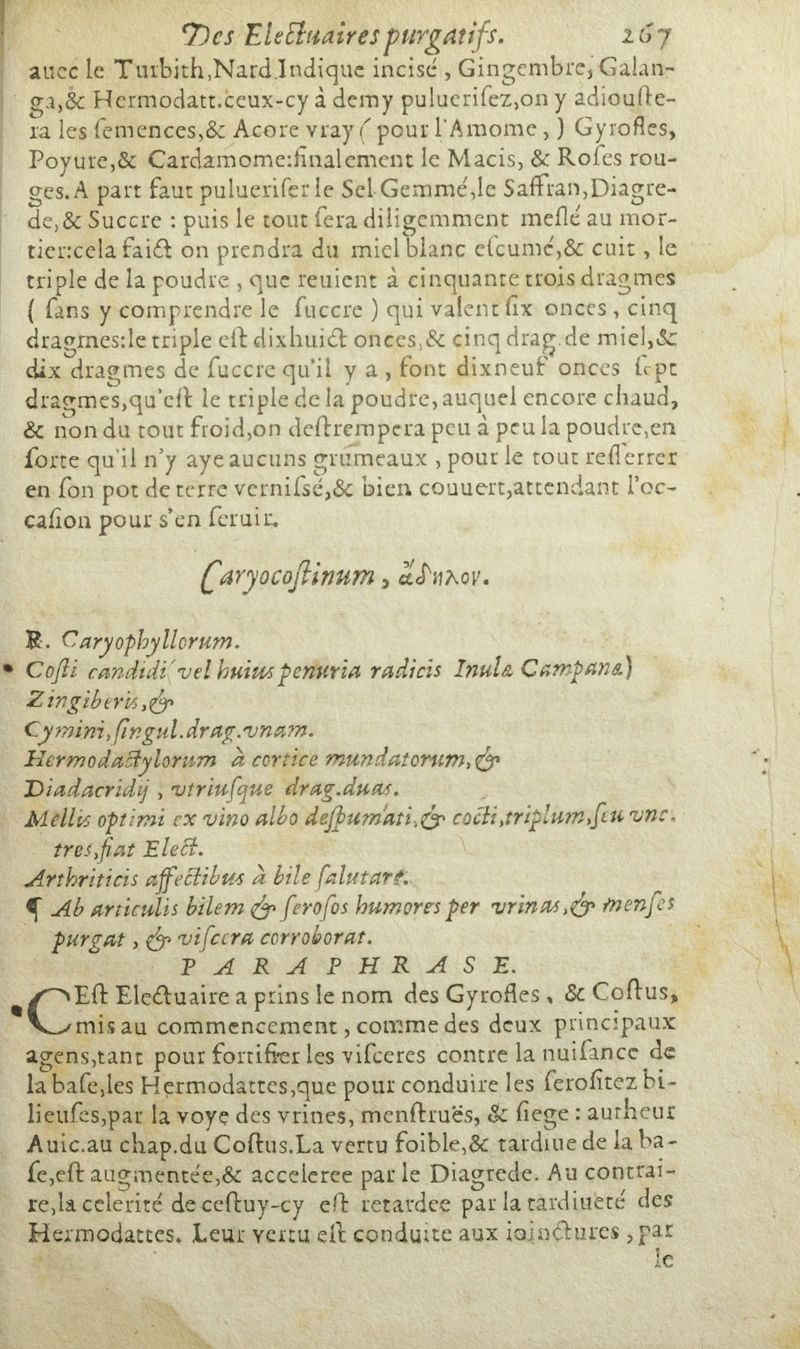 Des Electuaires purgatifs. 267
auec le Turbith,Nard Indique incisé, Gingembre, Galan-
ga,& Hermodatt.ceux-cy à demy puluerifez,on y adiouſte-
ra les ſemences,& Acore vray ( pour l'Amome, ) Gyrofles,
Poyure,& Cardamome:finalement le Macis, & Roſes rou-
ges. A part faut pulueriſer le Sel Gemmé,le Saffran,Diagre-
de,& Succre : puis le tout ſera diligemment meſlé au mor-
tier:cela faict on prendra du miel blanc eſcumé,& cuit, le
triple de la poudre, que reuient à cinquante trois dragmes
( ſans y comprendre le ſuccre ) qui valent ſix onces, cinq
dragmes:le triple eſt dixhuict onces,& cinq drag.de miel,&
dix dragmes de ſuccre qu'il y a, font dixneuf onces ſept
dragmes,qu'eſt le triple de la poudre,auquel encore chaud,
& non du tout froid,on deſtrempera peu à peu la poudre,en
ſorte qu'il n'y aye aucuns grumeaux, pour le tout reſſerrer
en ſon pot de terre verniſsé,& bien couuert,attendant l'oc-
caſion pour s'en ſeruir.
Caryocoſtinum, ἄδηλον.
℞. Caryophyllorum.
* Coſti candidi (vel huius penuria radicis Inulæ Campanæ)
Zingiberis,&
Cymini,ſingul.drag.vnam.
Hermodactylorum à cortice mundatorum,&
Diadacridij, vtriuſque drag.duas.
Mellis optimi ex vino albo deſpumati,& cocti,triplum,ſeu vnc.
tres,fiat Elect.
Arthriticis affectibus à bile ſalutare.
¶ Ab articulis bilem & ſeroſos humores per vrinas,& menſes
purgat, & viſcera corroborat.
PARAPHRASE.
* CEſt Electuaire a prins le nom des Gyrofles, & Coſtus,
mis au commencement, comme des deux principaux
agens,tant pour fortifier les viſceres contre la nuiſance de
la baſe,les Hermodattes,que pour conduire les ſeroſitez bi-
lieuſes,par la voye des vrines, menſtruës, & ſiege : autheur
Auic.au chap.du Coſtus.La vertu foible,& tardiue de la ba-
ſe,eſt augmentée,& acceleree par le Diagrede. Au contrai-
re,la celerité de ceſtuy-cy eſt retardee par la tardiueté des
Hermodattes. Leur vertu eſt conduite aux ioinctures, par
le